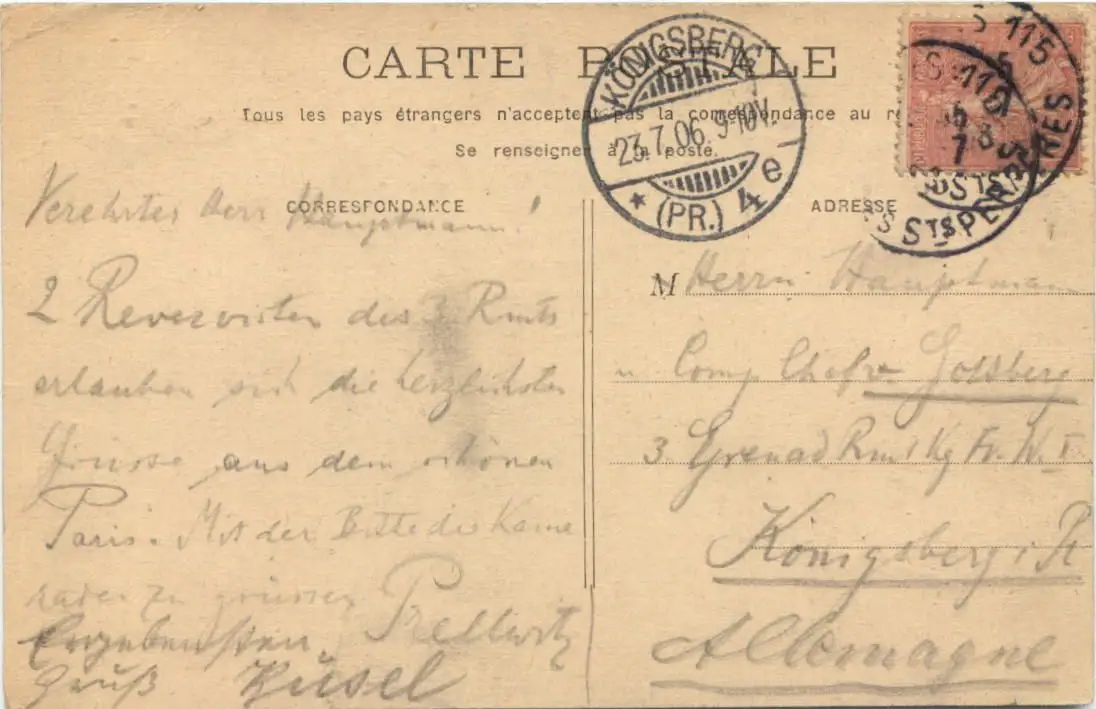 CARTE POSTALE
Tous les pays étrangers n'acceptent pas la correspondance au
Se renseigner à la poste.
KÖNIGSBERG
23.7.06. 9-10V.
* (PR.) 4 e
115
STS PÈRES
CORRESPONDANCE
Verehrter Herr Hauptmann!
2 Reservisten des 3. Rmts
erlauben sich die herzlichsten
Grüsse aus dem schönen
Paris. Mit der Bitte die Kame
raden zu grüssen Prellwitz
Ergebensten
Gruß Küsel
ADRESSE
M Herrn Hauptmann
u Comp Chef v. Golsberg
3 Grenad Rmt Kg Fr. W. I
Königsberg i Pr
Allemagne